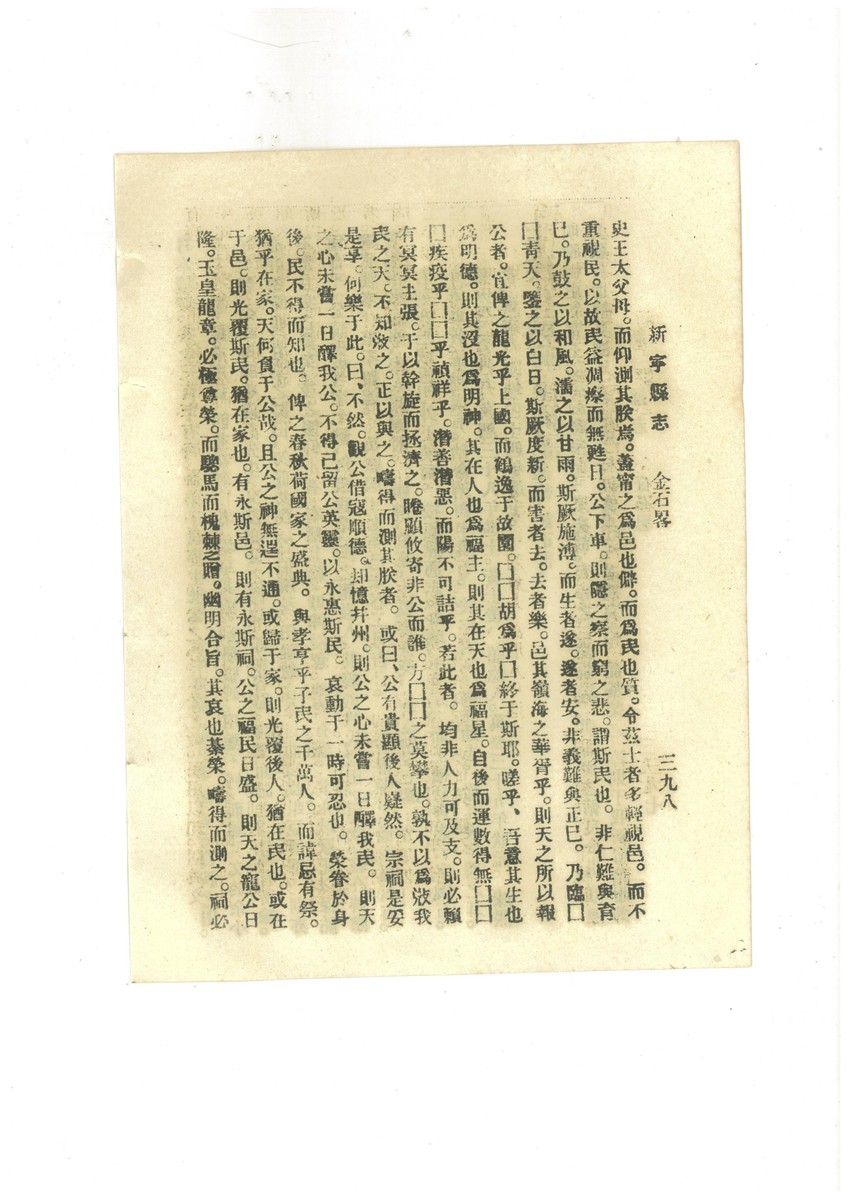 新寧縣志　金石畧　三九八
史王太父母。而仰測其朕焉。蓋甯之爲邑也僻。而爲民也質。令茲土者多輕視邑。而不
重視民。以故民益凋瘵而無甦日。公下車。則隱之察而窮之悲。謂斯民也。非仁難與育
已。乃鼓之以和風。濡之以甘雨。斯厥施溥。而生者遂。遂者安。非義難與正已。乃臨□
□靑天。鑒之以白日。斯厥度新。而害者去。去者樂。邑其嶺海之華胥乎。則天之所以報
公者。宜俾之龍光乎上國。而鶴逸于故園。□□胡爲乎□終于斯耶。嗟乎、吾意其生也
爲明德。則其沒也爲明神。其在人也爲福主。則其在天也爲福星。自後而運數得無□□
□疾疫乎□□乎禎祥乎。潛善潛惡。而陽不可詰乎。若此者。均非人力可及支。則必賴
有冥冥主張。于以幹旋而拯濟之。睠顧攸寄非公而誰。方□□之莫攀也。孰不以爲斂我
民之天。不知斂之。正以與之。疇得而測其朕者。或曰、公有貴顯後人嶷然。宗祠是妥
是享。何樂于此。曰、不然。觀公借寇順德。却憶幷州。則公之心未嘗一日釋我民。則天
之心未嘗一日釋我公。不得已留公英靈。以永惠斯民。哀動于一時可忍也。榮眷於身
後。民不得而知也。俾之春秋荷國家之盛典。與孝享乎子民之千萬人。而諱忌有祭。
猶乎在家。天何負于公哉。且公之神無逞不通。或歸于家。則光覆後人。猶在民也。或在
于邑。則光覆斯民。猶在家也。有永斯邑。則有永斯祠。公之福民日盛。則天之寵公日
隆。玉皇龍章。必極尊榮。而驄馬而槐棘之贈。幽明合旨。其哀也綦榮。疇得而測之。祠必